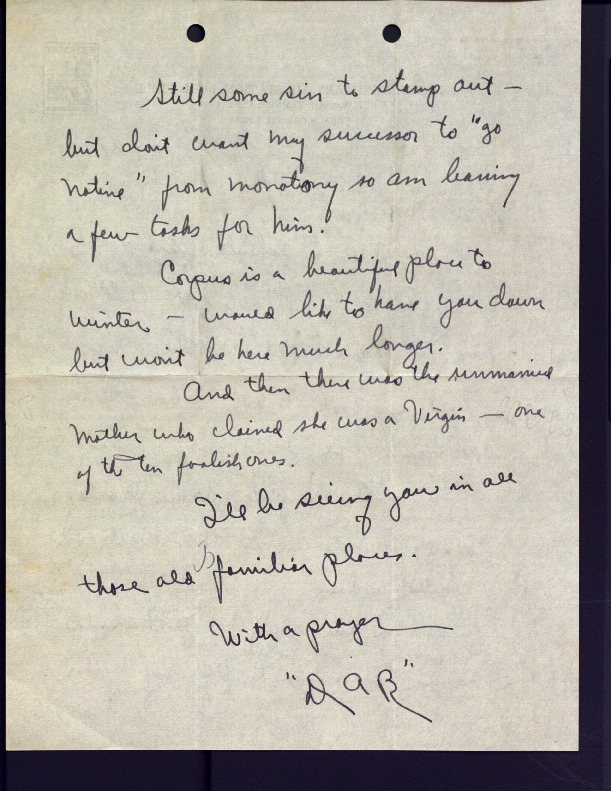 Still some sin to stamp out —
but don't want my successor to "go
native" from monotony so am leaving
a few tasks for him!
Corpus is a beautiful place to
winter — would like to have you down
but won't be here much longer.
And then there was the unmarried
Mother who claimed she was a Virgin — one
of the ten foolish ones.
I'll be seeing you in all
those old familiar places.
With a prayer
"DAR"